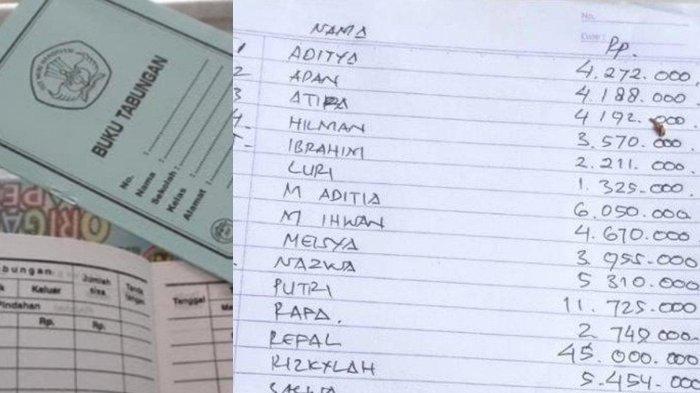 BUKU TABUNGAN
No. :
Nama :
Sekolah :
Kelas :
Alamat :
ORIGA
APE
Keluar
Jumlah sisa
Tanda tangan
Tanggal
Pindahan
Rp. Rp.
No.
Date :
NAMA Rp.
1 ADITYA 4.272.000,
2 APAN 4.188.000
3 ATIRA 4.192.000.
4. HILMAN 3.570.000.
IBRAHIM 2.211.000.
LURI 1.325.000
M ADITIA 6.050.000
M IHWAN 4.670.000
MELSYA 3.955.000
NAZWA 5.310.000
PUTRI 11.725.000
RAPA. 2.749.000
REPAL 45.000.000
RIZKYLAH 5.454.000